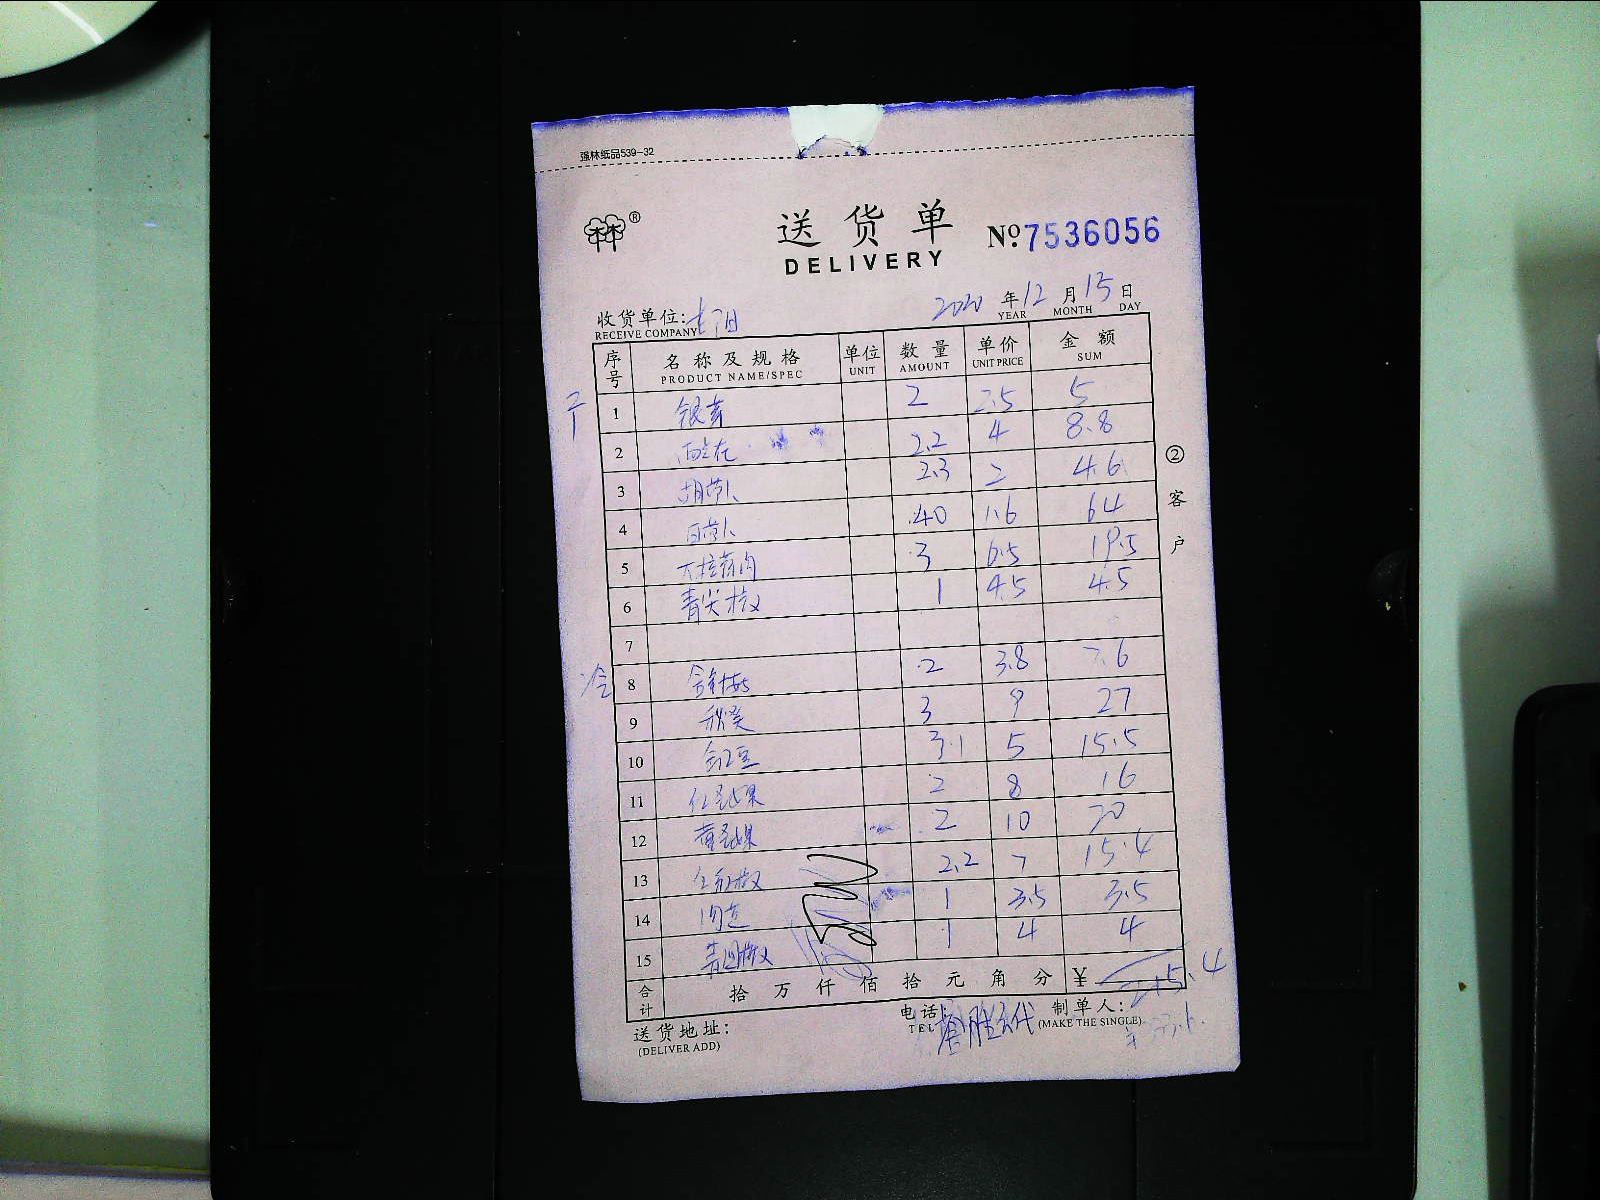 强林纸品539-32
®
送货单
DELIVERY
Nº 7536056
2020 年 12 月 15 日
YEAR MONTH DAY
收货单位:
RECEIVE COMPANY
序号 名称及规格 单位 数量 单价 金额
PRODUCT NAME/SPEC UNIT AMOUNT UNIT PRICE SUM
1 银芽 2 2.5 5
2 西兰花 2.2 4 8.8
3 胡萝卜 2.3 2 4.6
4 白萝卜 40 1.6 64
5 3 6.5 19.5
6 青尖椒 1 4.5 4.5
7
冷 8 金针菇 2 3.8 7.6
9 秋葵 3 9 27
10 3.1 5 15.5
11 红圣女果 2 8 16
12 黄圣女果 2 10 20
13 2.2 7 15.4
14 1 3.5 3.5
15 青圆椒 1 4 4
合计 拾万仟佰拾元角分 ¥ 215.4
②客户
送货地址:
(DELIVER ADD)
电话
TEL
制单人:
(MAKE THE SINGLE)